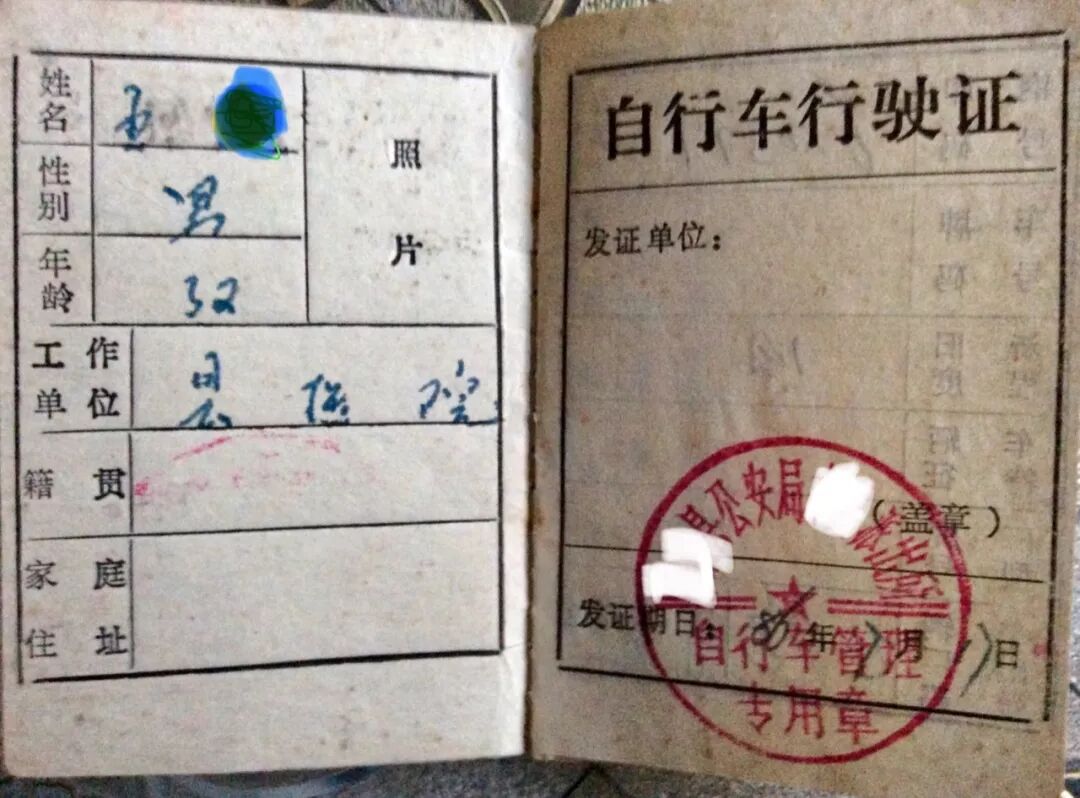 姓名 王
照片
性别 男
年龄 32
工作单位 县 医院
籍贯
家庭住址
自行车行驶证
发证单位：
（盖章）
发证期日： 年 月 日
县公安局
自行车管理
专用章